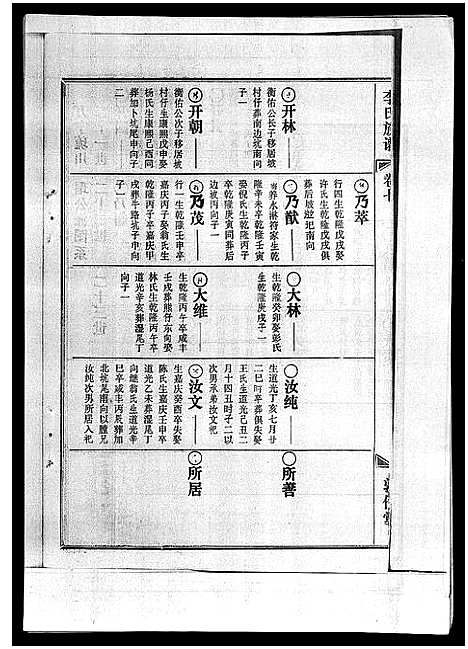 李氏族谱
卷七
开林
衡佑公长子移居坡
村仔葬南边坑南向
子一
开朝
衡佑公次子移居坡
村仔生康熙戊申娶
杨氏生康熙己酉同
葬加卜坑尾申向子
二
乃萃
行四生乾隆戊戌娶
许氏生乾隆戊戌俱
葬后坡沚圯南向
乃猷
出养水淋符家生乾
隆辛未卒乾隆壬寅
娶倪氏生乾隆丙子
卒乾隆庚寅同葬后
边坡丙向子一
乃茂
行一生乾隆壬申卒
嘉庆丙子娶翁氏生
乾隆丙子卒嘉庆甲
戌葬牛路坑子申向
子一
大林
生乾隆癸卯娶彭氏
生乾隆庚戌子一
大维
生乾隆丙午卒咸丰
壬戌葬熊仔东向娶
林氏生乾隆丙午卒
道光辛亥葬湿尾丁
向子一
汝纯
生道光丁亥七月廿
二巳时卒葬俱失娶
王氏生道光己丑二
月十四丑时子二以
次男承弟汝文祀
汝文
生嘉庆癸酉卒失娶
陈氏生嘉庆壬申卒
道光乙未葬湿尾丁
向继翁氏生道光辛
巳卒咸丰丙辰葬加
北坑尾甫向以胞兄
汝纯次男所居入祀
所善
所居